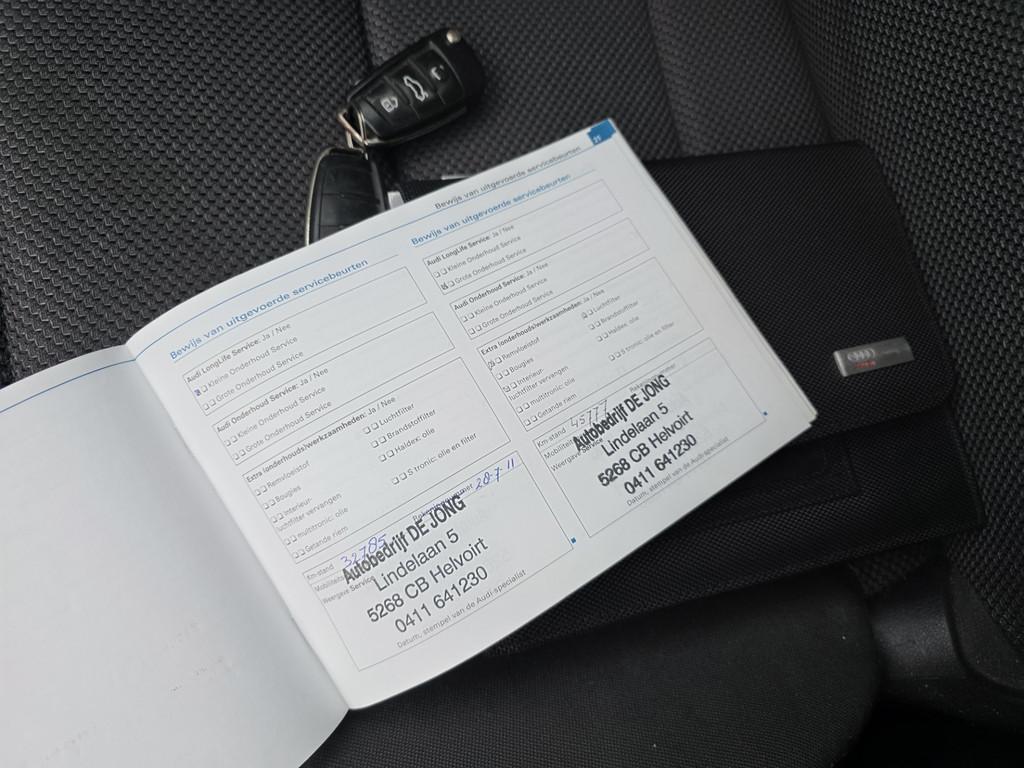 Bewijs van uitgevoerde servicebeurten
Audi LongLife Service: Ja / Nee
Kleine Onderhoud Service
Grote Onderhoud Service
Audi Onderhoud Service: Ja / Nee
Kleine Onderhoud Service
Grote Onderhoud Service
Extra (onderhouds)werkzaamheden: Ja / Nee
Remvloeistof
Luchtfilter
Bougies
Brandstoffilter
Interieur-
luchtfilter vervangen
Haldex: olie
multitronic: olie
S tronic: olie en filter
Getande riem
Km-stand 32785
Rekeningnummer 28-7-11
Mobiliteits
Weergave Service
Autobedrijf DE JONG
Lindelaan 5
5268 CB Helvoirt
0411 641230
Datum, stempel van de Audi-specialist
Bewijs van uitgevoerde servicebeurten
21
Bewijs van uitgevoerde servicebeurten
Audi LongLife Service: Ja / Nee
Kleine Onderhoud Service
Grote Onderhoud Service
Audi Onderhoud Service: Ja / Nee
Kleine Onderhoud Service
Grote Onderhoud Service
Extra (onderhouds)werkzaamheden: Ja / Nee
Remvloeistof
Luchtfilter
Bougies
Brandstoffilter
Interieur-
luchtfilter vervangen
Haldex: olie
multitronic: olie
S tronic: olie en filter
Getande riem
Km-stand 45777
Mobiliteits
Weergave Service
Autobedrijf DE JONG
Lindelaan 5
5268 CB Helvoirt
0411 641230
Datum, stempel van de Audi-specialist